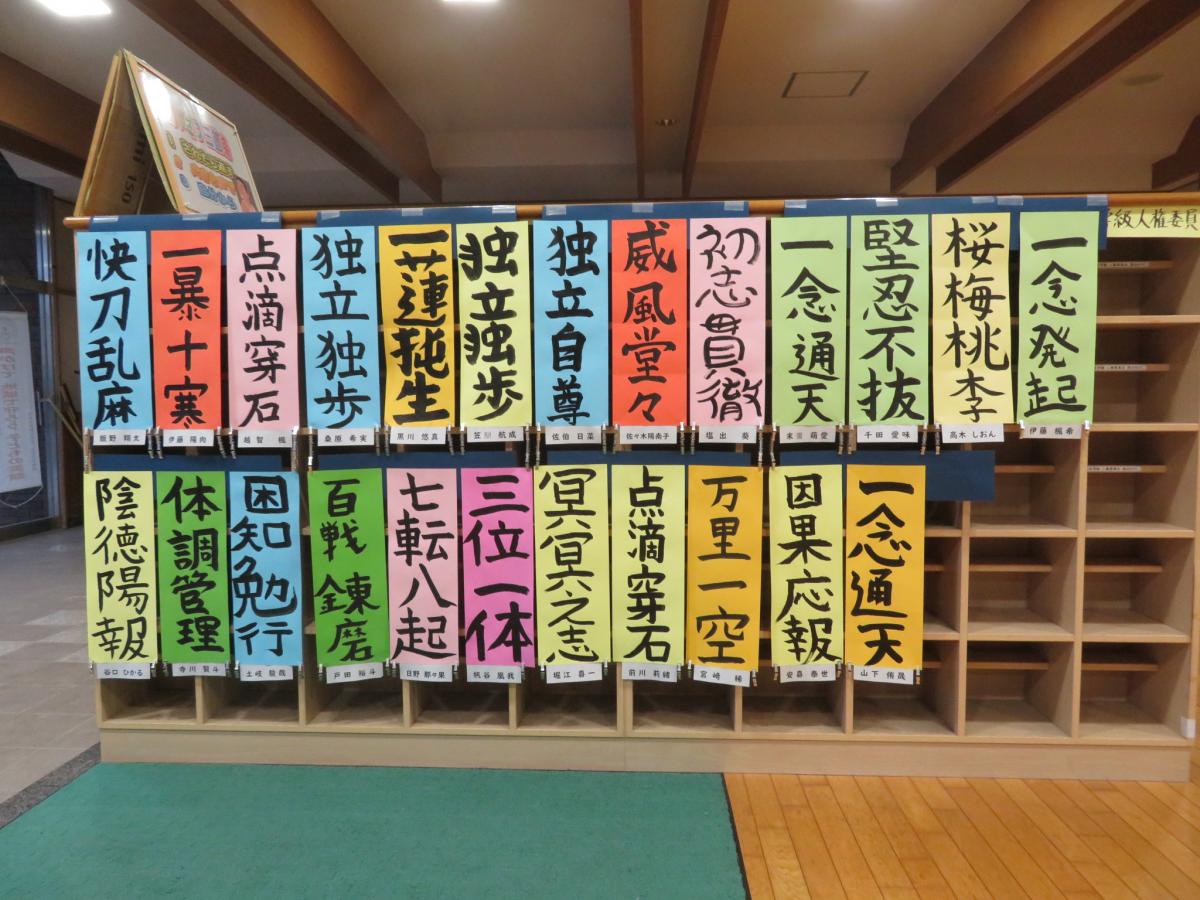 快刀乱麻
一暴十寒
点滴穿石
独立独歩
一蓮托生
独立独歩
独立自尊
威風堂々
初志貫徹
一念通天
堅忍不抜
桜梅桃李
一念発起
飯野 翔太
伊藤 陽向
越智 楓
桑原 希実
黒川 悠真
航成
佐伯 日菜
佐々木陽南子
塩出 葵
萌愛
千田 愛味
高木 しおん
伊藤 楓希
陰徳陽報
体調管理
困知勉行
百戦錬磨
七転八起
三位一体
冥冥之志
点滴穿石
万里一空
因果応報
一念通天
谷口 ひかる
寺川 賢斗
土岐 駿哉
戸田 裕斗
日野 那々果
帆谷 凰我
堀江 喜一
前川 莉緒
宮崎 稀
安喜 泰世
山下 侑晟
級人権委員
150